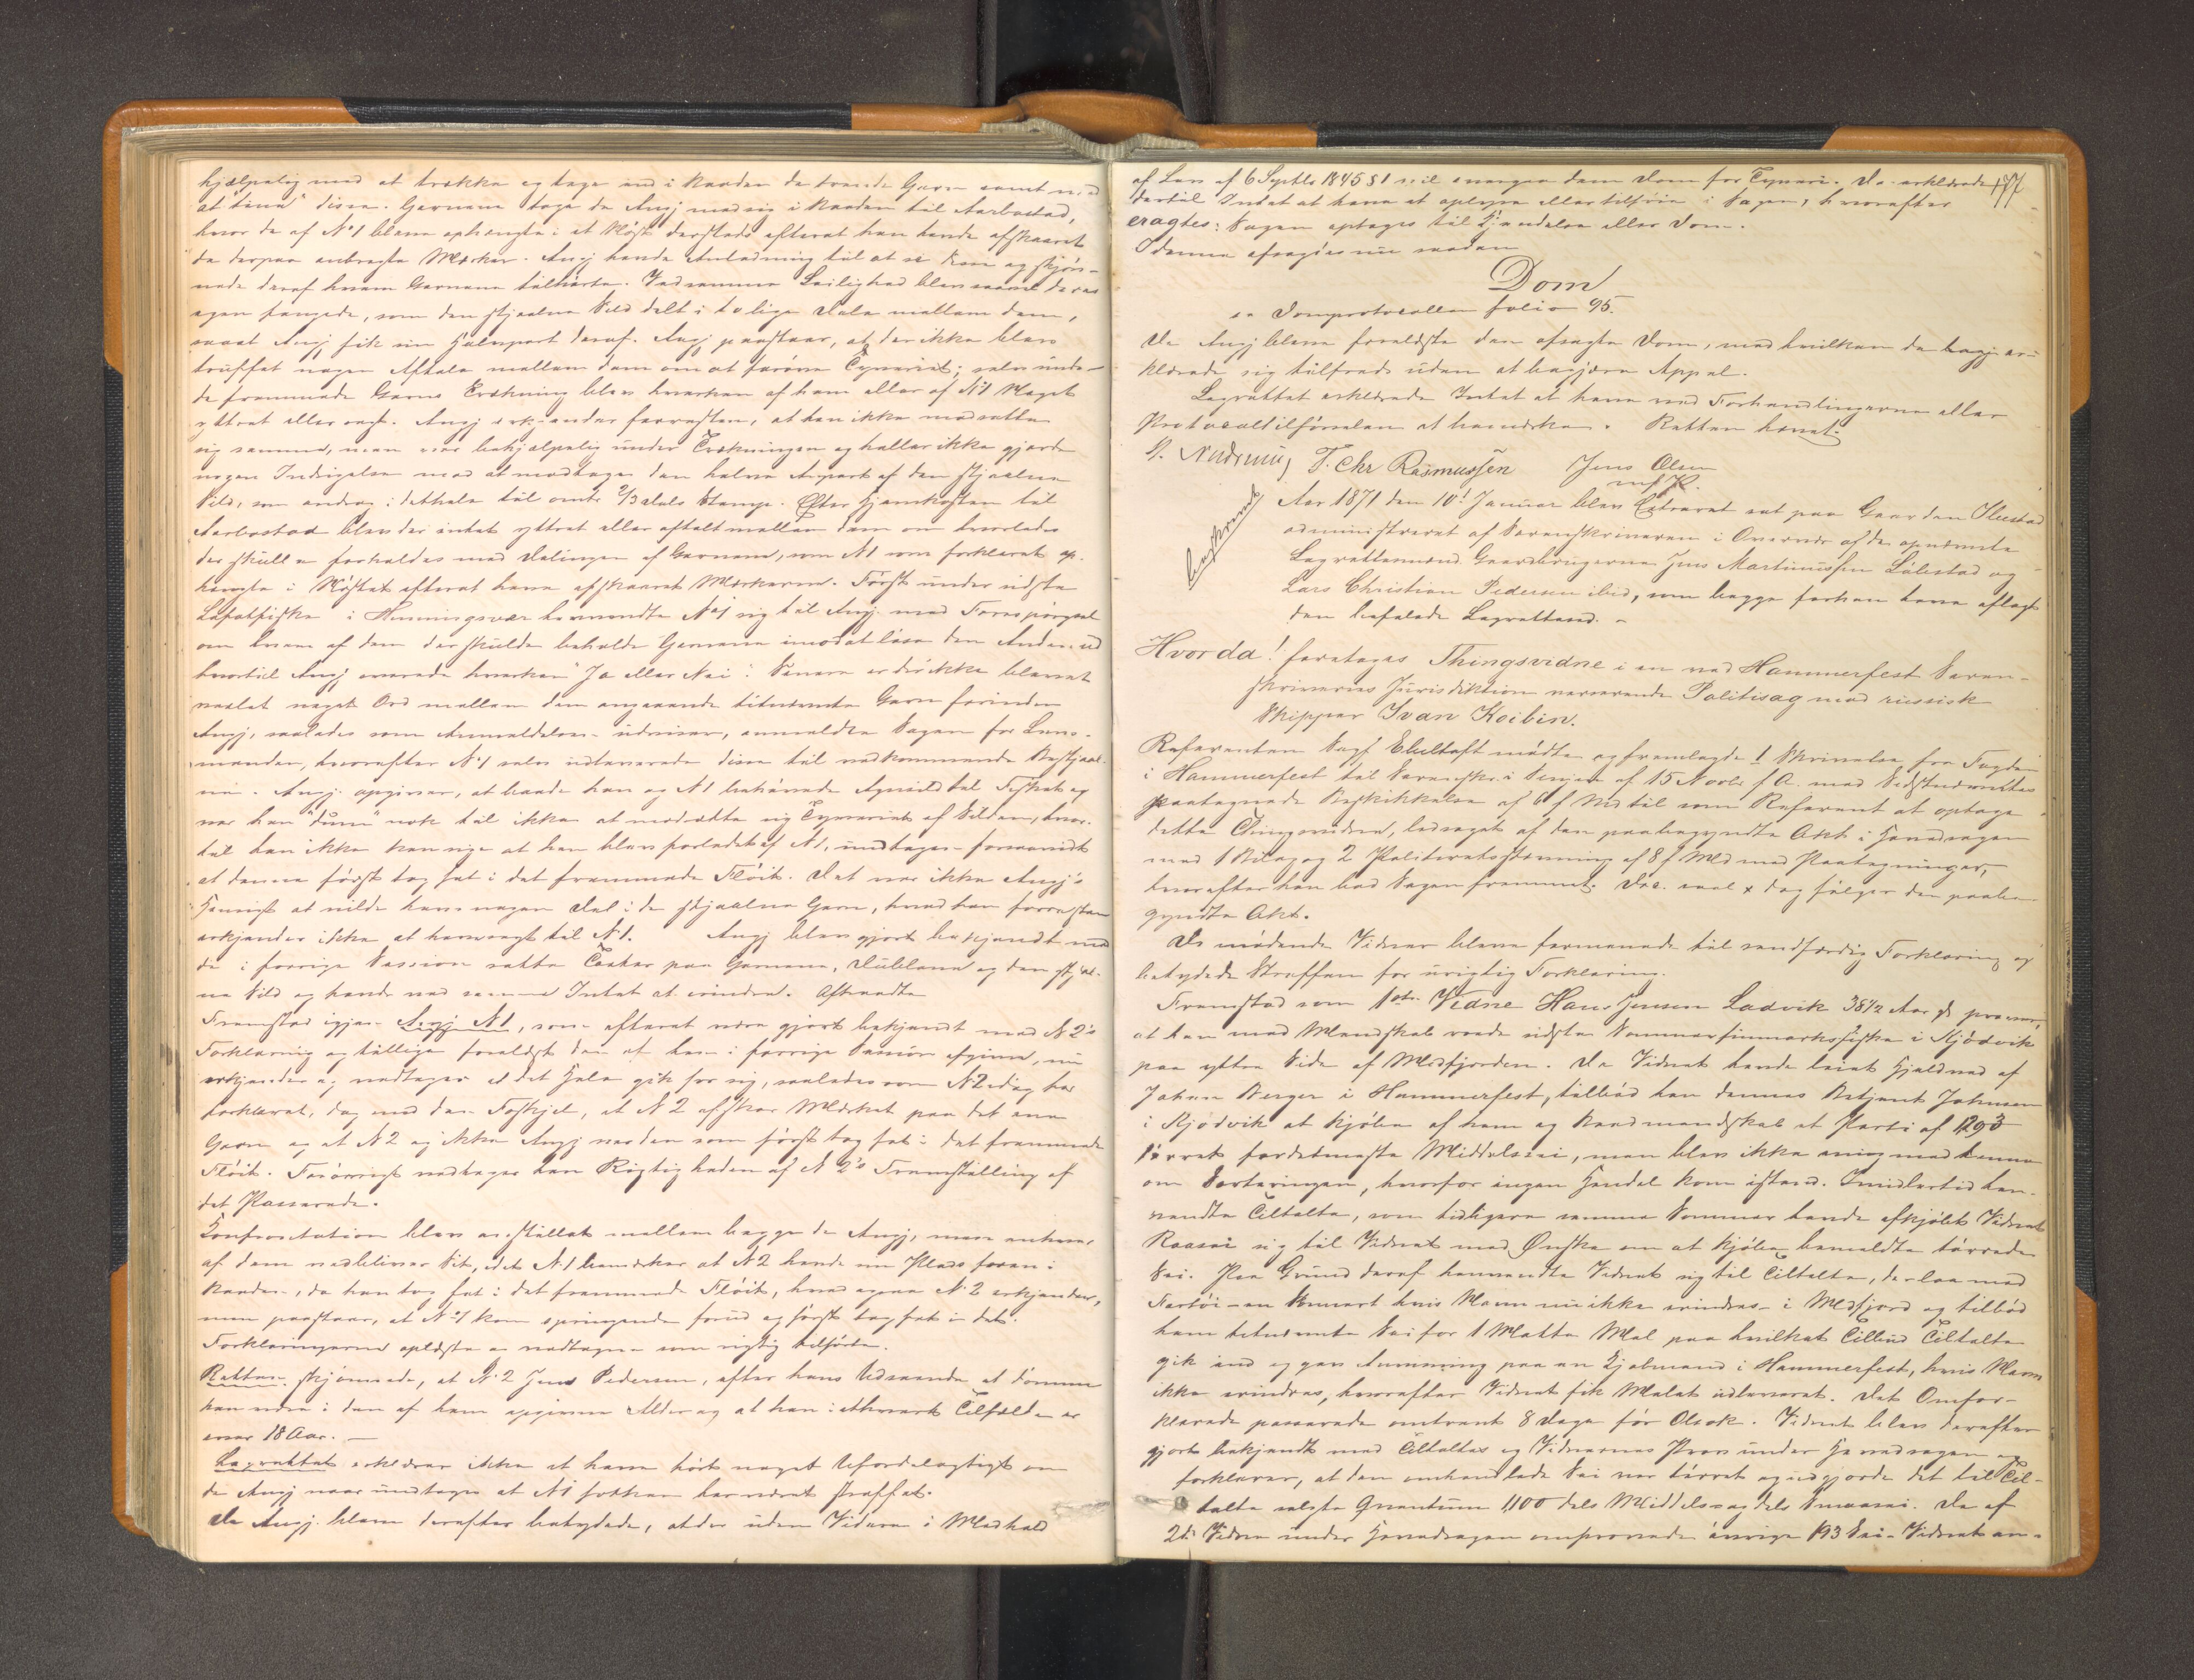 hjælpelig med at trække og tage ind i Baaden de tvende Garn samt med
at "tine" disse. Garnene toge de Angj med sig i Baaden til Aarbostad,
hvor de af N° 1 bleve ophængte i et Nøst dersteds efterat han havde afskaaret
de derpaa anbragte Mærker. Angj havde Anledning til at se dem og skjøn-
nede deraf hvem Garnene tilhørte. Ved samme Leilighed blev saavel deres
egen fangede, som den stjaalne Sild delt i to lige Dele mellem dem,
saaat Angj fik sin Halvpart deraf. Angj paastaar, at der ikke blev
truffet nogen Aftale mellem dem om at forøve Tyveriet; selv unde-
de fremmede Garns Trækning blev hverken af ham eller af N° 1 Noget
yttret eller sagt. Angj erkjender forresten, at han ikke modsatte
sig samme, men var behjælpelig under Trækningen og heller ikke gjorde
nogen Indsigelse mod at modtage den halve Anpart af den stjaalne
Sild, som androg i dethele til omtr. 2/3 dels Stamp. Efter Hjemkosten til
Aarbostad blev der intet yttret eller aftalt mellem dem om hvorledes
der skulde forholdes med Delingen af Garnene, som N 1 som forklaret op-
hængte i Nøstet efterat have afskaaret Mærkerne. Først under sidste
Lofotfiske i Henningsvær henvendte N° 1 sig til Angj. med Forespørgsel
om hvem af dem der skulde beholde Garnene imod at løse den Anden ud
hvortil Angj svarede hverken "Ja eller Nei". Senere er der ikke blevet
vexlet noget Ord mellem dem angaaende bemeldte Garn forinden
Angj, saaledes som Anmeldelsen udviser, anmeldte Sagen for Lens-
manden, hvorefter N° 1 selv udleverede disse til vedkommende Bestjaal-
ne. Angj. opgiver, at baade han og N 1 behøvede Agnsild til Fiskeriet og
var han "dum" nok til ikke at modsætte sig Tyveriet af Silden, hvor-
til han ikke kan sige at han blev forledet af N 1, undtagen forsaavidt
at denne først tog fat i det fremmede Fløit. Det var ikke Angj's
Hensigt at ville have nogen Del i de stjaalne Garn, hvad han forresten
erkjender ikke at have sagt til N° 1. Angj blev gjort bekjendt med
de i forrige Session satte Taxter paa Garnene, Dubblene og den stjaal-
ne Sild og havde ved samme Intet at erindre. Aftraadte
Fremstod igjen Angj N 1, som efterat være gjort bekjendt med N 2's
Forklaring og tillige forelæst den af ham i forrige Session afgivne, nu
erkjender og vedtager at det Hele gik for sig, saaledes som N 2 idag har
forklaret, dog med den Forskjel, at N 2 afskar Mærket paa det ene
Garn og at N 2 og ikke Angj var den som først tog fat i det fremmede
Fløit. Forøvrigt vedtager han Rigtigheden af N 2's Fremstilling af
det Passerede.
Confrontation blev anstillet mellem begge de Angj, men enhver
af dem vedbliver Sit, idet N. 1 bemærker at N 2 havde sin Plads foran i
Baaden, da han tog fat i det fremmede Fløit, hvad ogsaa N° 2 erkjender,
men paastaar, at N° 1 kom springende forud og først tog fat i det.
Forklaringerne oplæste er vedtagen som rigtig tilførte.
Retten skjønnede, at N° 2 Jens Pedersen, efter hans Udseende at dømme
kan være i den af ham opgivne Alder og at han i ethvert Tilfælde er
over 18 Aar. —
Lagrettet erklærer ikke at have hørt noget Ufordelagtigt om
de Angj naar undtages at N 1 forhen har været straffet.
De Angj. bleve derefter betydede, at der uden Videre i Medhold
af Lov af 6 Septbr 1845 § 1 vil overgaa dem Dom for Tyveri. De erklærede
dertil Intet at have at oplyse eller tilføie i Sagen, hvorefter
eragtes: Sagen optages til Kjendelse eller Dom.
I denne afsagdes nu saadan
Dom
se Domprotocollen folio 95.
De Angj bleve forelæste den afsagte Dom, med hvilken de begge er-
klærede sig tilfreds uden at begjære Appel.
Lagrettet erklærede Intet at have ved Forhandlingerne eller
Protocoltilførselen at bemærke. Retten hævet.
F. Chr Rasmussen Jens Olsen
mfP.
Aar 1871 den 10de Januar blev Extraret sat paa Gaarden Ibestad
administreret af Sorenskriveren i Overvær af de opnævnte
Lagrettemænd Gaardbrugerne Jens Martinussen Lølestad og
Lars Christian Pedersen ibid, som begge forhen have aflagt
den befalede Lagretteed. -
Hvor da! foretoges Thingsvidne i en ved Hammerfest Soren-
skriveries Jurisdiktion verserende Politisag mod russisk
Skipper Ivan Koibin.
Referenten Sagf Ebeltoft mødte og fremlagde 1 Skrivelse fra Fogden
i Hammerfest til Sorenskr. i Senjen af 15 Novbr f A. med Vedstævntes
paategnede Beskikkelse af 6 f Md til som Referent at optage
dette Thingsvidne, ledsaget af den paabegyndte Akt i Hovedsagen
med 1 Bilag og 2 Politiretsstævning af 8 f Md med Paategninger,
hvorefter han bad Sagen fremmet. Doc. med x dog følger den paabe-
gyndte Akt.
De mødende Vidner bleve formanede til sandfærdig Forklaring og
betydede Straffen for urigtig Forklaring.
Fremstod som 1ste Vidne Hans Jensen Ladvik 38 1/2 Aar
at han med Mandskab roede sidste Sommerfinmarksfiske i Kjødvik
paa yttre Side af Mefjorden. Da Vidnet havde leiet Hjeldved af
Johan Berger i Hammerfest, tilbød han dennes Betjent Johnsen
i Kjødvik at kjøbe af ham og Baadmandskab et Parti af 1293
tørret fordetmeste Middelsei, men blev ikke enig med denne
om Sorteringen, hvorfor ingen Handel kom istand. Imidlertid hen-
vendte Tiltalte, som tidligere samme Sommer havde afkjøbt Vidnet
Raasei sig til Vidnet med Ønske om at kjøbe bemeldte tørrede
Sei. Paa Grund deraf henvendte Vidnet sig til Tiltalte, der laa med
Fartøi - en hvis Navn nu ikke erindres - i Mefjord og tilbød
ham bemeldte Sei for 1 Matte Mel paa hvilket Tilbud Tiltalte
gik ind og gav Anvisning paa en Kjøbmand i Hammerfest, hvis Navn
ikke erindres, hvorefter Vidnet fik Melet udleveret. Det Omfor-
klarede passerede omtrent 8 Dage før Olsok. Vidnet blev derefter
gjort bekjendt med Tiltaltes og Vidnernes Prov under Hovedsagen og
forklarer, at den omhandlede Sei var tørret og udgjorde det til Til-
talte solgte Quantum 1100 dels Middels og dels Smaasei. De af
2det Vidne under Hovedsagen omprovede øvrige 193 Sei - Vidnet an-